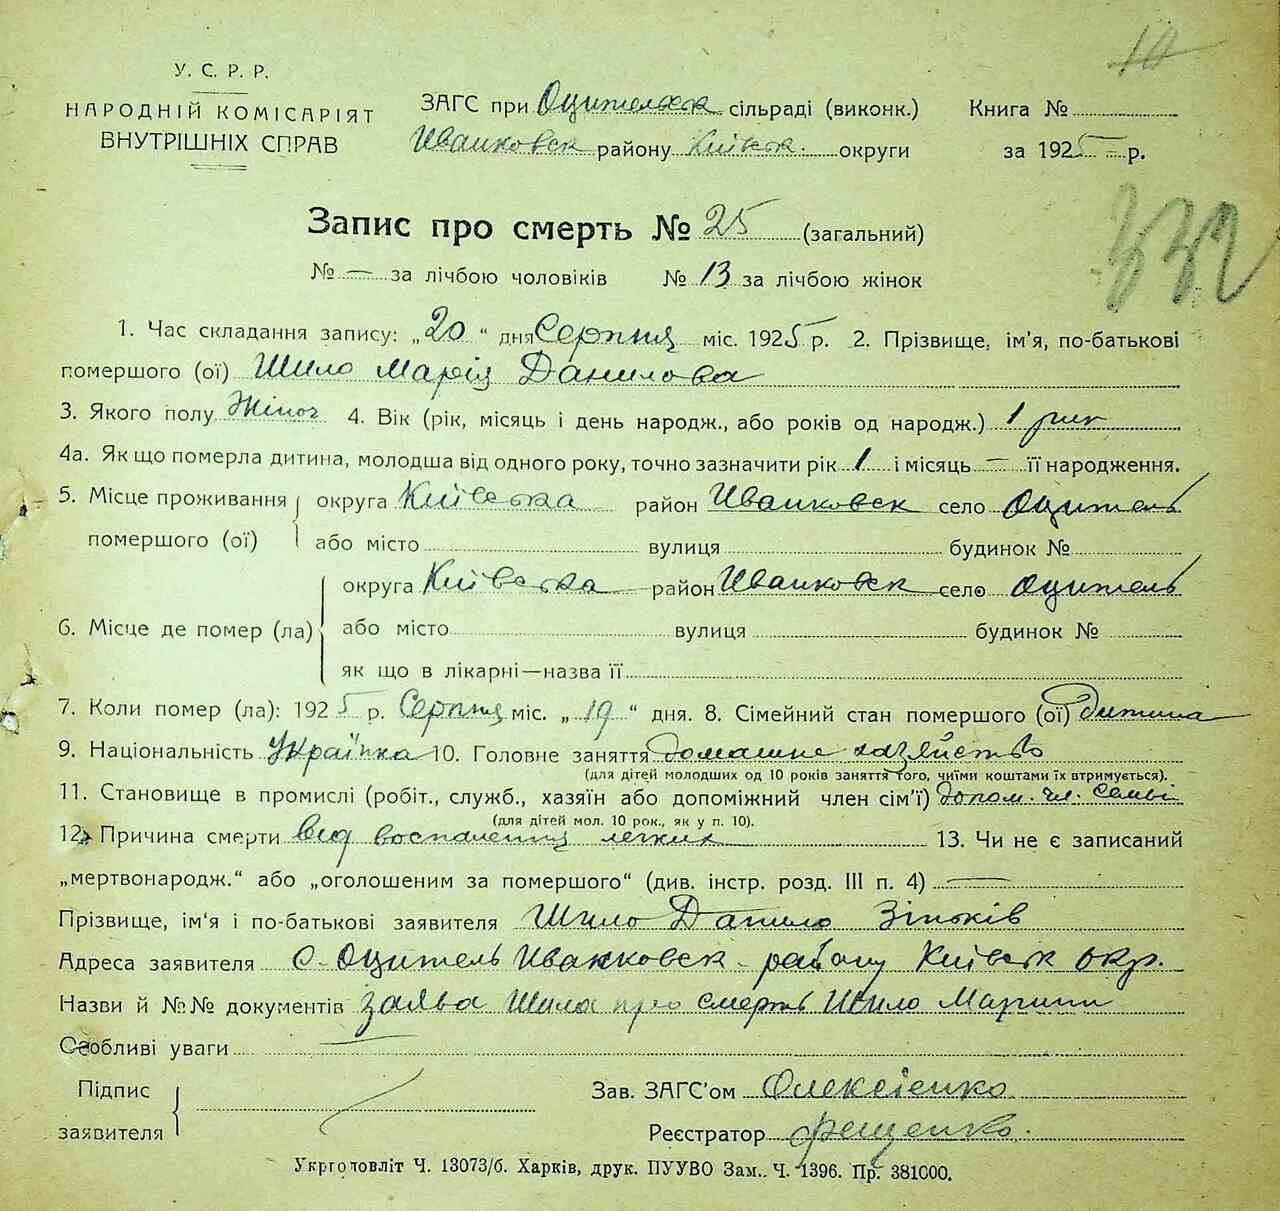 10
У. С. Р. Р.
НАРОДНІЙ КОМІСАРІЯТ
ВНУТРІШНІХ СПРАВ
ЗАГС при Оцительск сільраді (виконк.)
Иванковск району Київск. округи
Книга №
за 1925 р.
332
Запис про смерть № 25 (загальний)
№ — за лічбою чоловіків № 13 за лічбою жінок
1. Час складання запису: „20“ дня Серпня міс. 1925 р. 2. Прізвище, ім'я, по-батькові
помершого (ої) Шило Марія Данилова
3. Якого полу Жіноч 4. Вік (рік, місяць і день народж., або років од народж.) 1 рик
4а. Як що померла дитина, молодша від одного року, точно зазначити рік 1 і місяць — її народження.
5. Місце проживання округа Київська район Иванковск село Оцитель
помершого (ої) або місто вулиця будинок №
округа Київська район Иванковск село Оцитель
6. Місце де помер (ла) або місто вулиця будинок №
як що в лікарні—назва її
7. Коли помер (ла): 1925 р. Серпня міс. „19“ дня. 8. Сімейний стан помершого (ої) дитина
9. Національність Українка 10. Головне заняття домашне хазяйство
(для дітей молодших од 10 років заняття того, чиїми коштами їх втримується).
11. Становище в промислі (робіт., служб., хазяїн або допоміжний член сім'ї) допом. чл. Семьі
(для дітей мол. 10 рок., як у п. 10).
12. Причина смерти від воспаления легких 13. Чи не є записаний
„мертвонародж.“ або „оголошеним за помершого“ (див. інстр. розд. III п. 4) —
Прізвище, ім'я і по-батькові заявителя Шило Данило Зіньків
Адреса заявителя с. Оцитель Иванковск району Київск окр.
Назви й №№ документів заява Шила про смерть Шило Марини
Особливі уваги —
Підпис
заявителя
Зав. ЗАГС'ом Олексієнко
Реєстратор Фещенко.
Укрголовліт Ч. 13073/б. Харків, друк. ПУУВО Зам.. Ч. 1396. Пр. 381000.